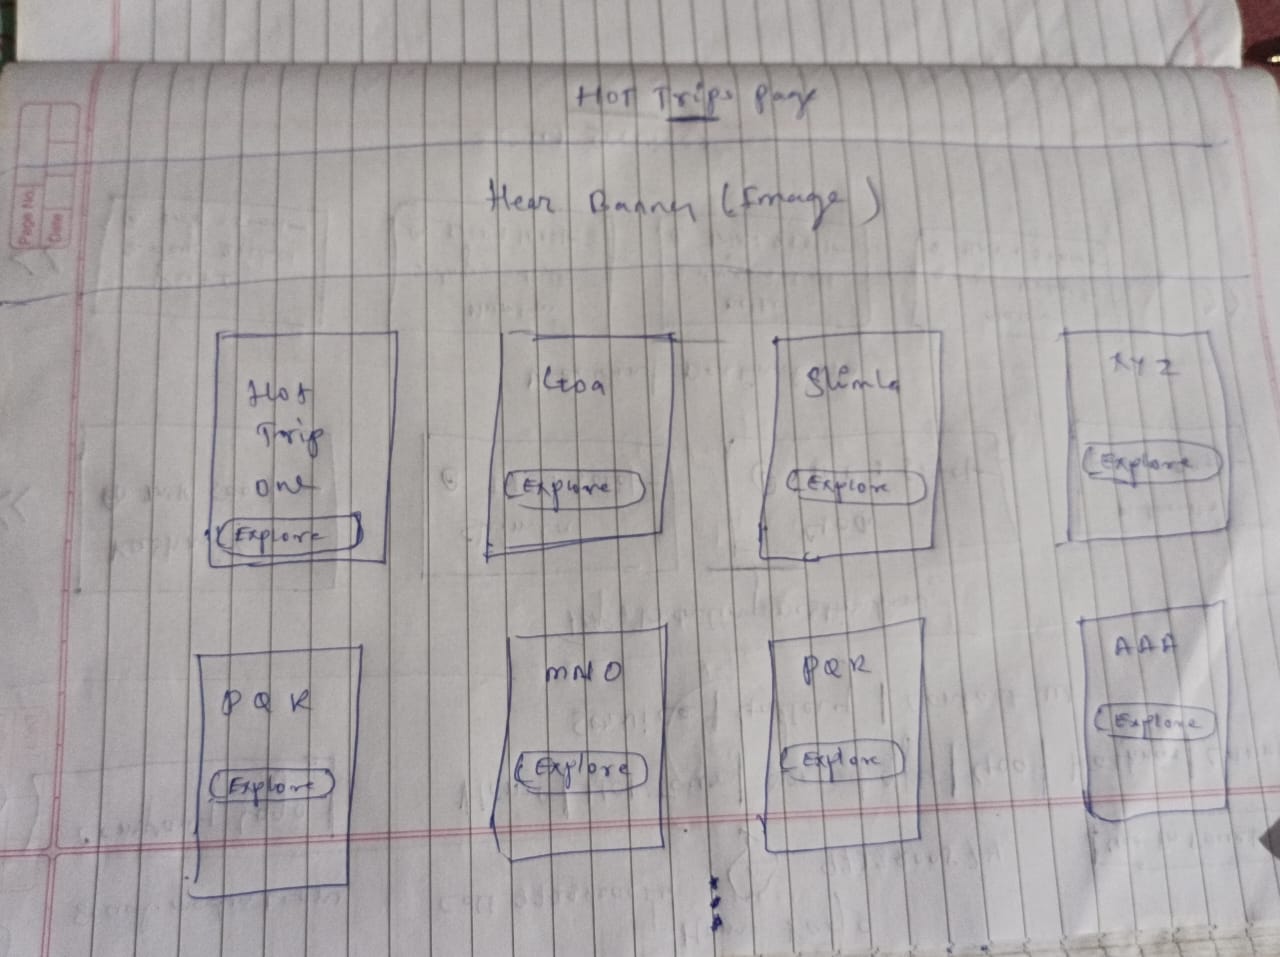 Page No.
Date
HOT Trips Page
Hear Banner (Image)
Hot
Trip
one
Explore
Goa
Explore
Shimla
Explore
XYZ
Explore
PQR
Explore
MNO
Explore
PQR
Explore
AAA
Explore